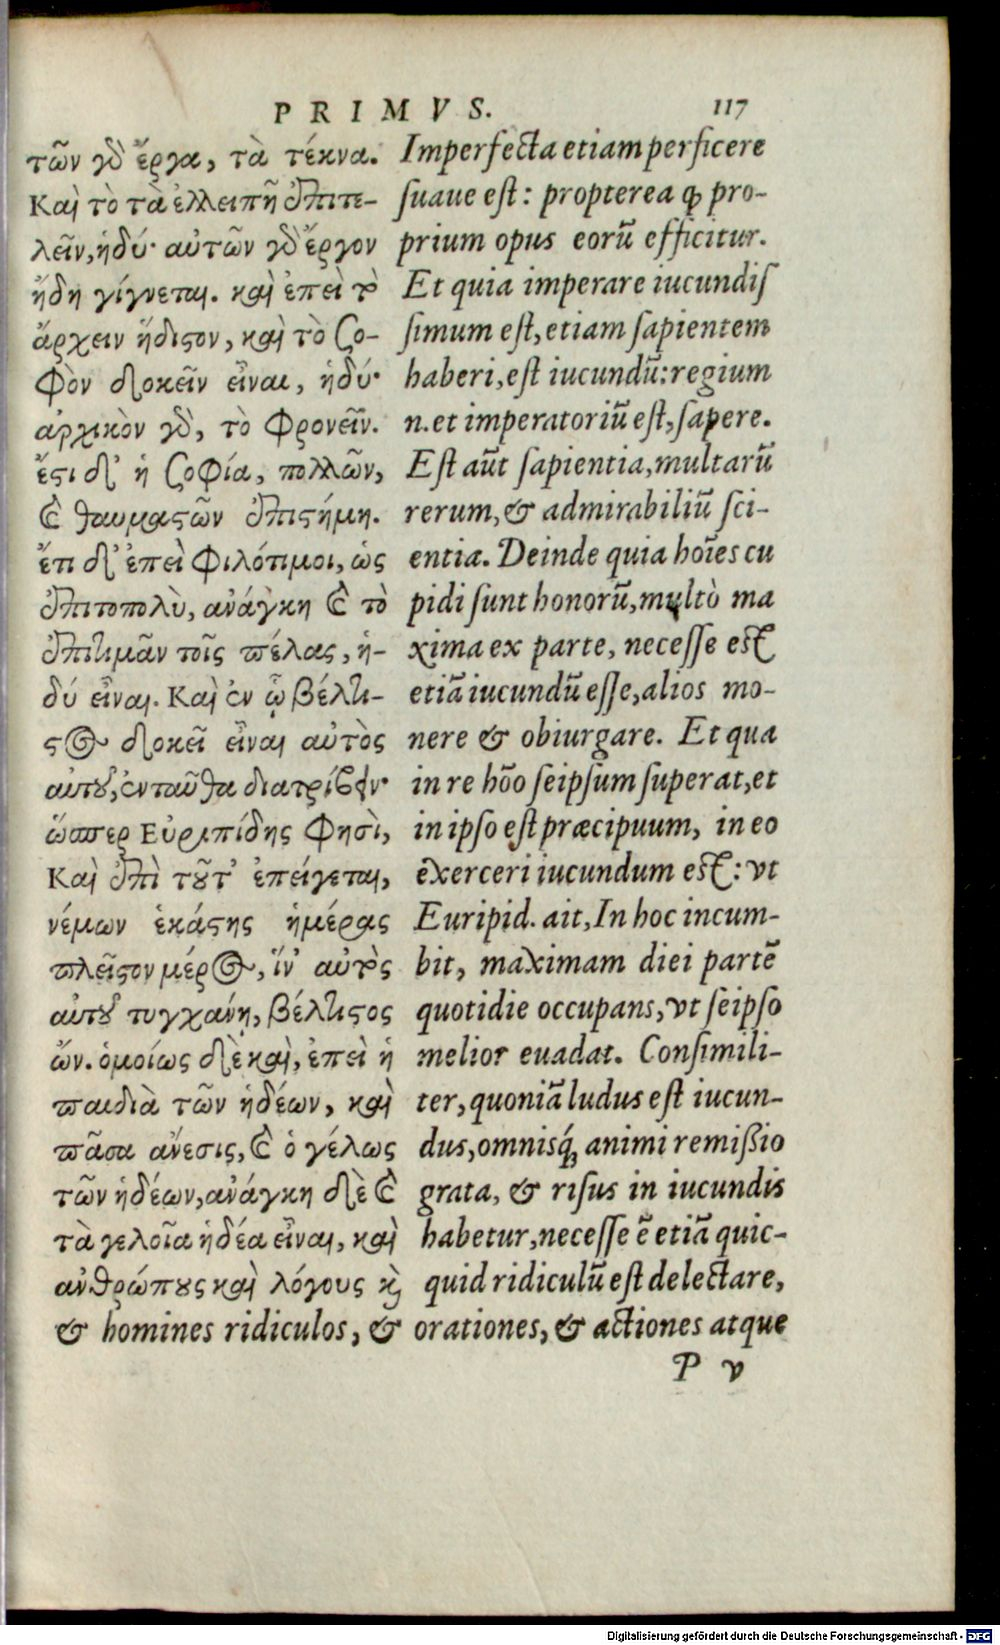 PRIMVS. 117
τῶν γὸ ἔργα, τὰ τέκνα.
Καὶ τὸ τὰ ἐλλειπῆ ἐπιτε-
λεῖν, ἡδύ· αὐτῶν γὸ ἔργον
ἤδη γίγνεται. καὶ ἐπεὶ τὸ
ἄρχειν ἥδιϛον, καὶ τὸ ϲο-
φὸν δοκεῖν εἶναι, ἡδύ·
ἀρχικὸν γὸ, τὸ φρονεῖν.
ἔϛι δ' ἡ ϲοφία, πολλῶν,
& θαυμαϛῶν ἐπιϛήμη.
ἔτι δ' ἐπεὶ φιλότιμοι, ὡς
ἐπιτοπολὺ, ἀνάγκη & τὸ
ἐπιτιμᾶν τοῖς πέλας, ἡ-
δύ εἶναι. Καὶ ἐν ᾧ βέλτι-
ϛος δοκεῖ εἶναι αὐτὸς
αὑτοῦ, ἐνταῦθα διατρίβειν·
ὥσπερ Εὐριπίδης φησὶ,
Καὶ ἐπὶ τοῦτ' ἐπείγεται,
νέμων ἑκάϛης ἡμέρας
πλεῖϛον μέρος, ἵν' αὐτὸς
αὑτοῦ τυγχάνῃ, βέλτιϛος
ὤν. ὁμοίως δὲ καὶ, ἐπεὶ ἡ
παιδιὰ τῶν ἡδέων, καὶ
πᾶσα ἄνεσις, & ὁ γέλως
τῶν ἡδέων, ἀνάγκη δὲ &
τὰ γελοῖα ἡδέα εἶναι, καὶ
ἀνθρώπους καὶ λόγους ϗ
Imperfecta etiam perficere
ſuaue eſt: propterea ꝙ pro-
prium opus eorũ efficitur.
Et quia imperare iucundiſ
ſimum eſt, etiam ſapientem
haberi, eſt iucundũ: regium
n. et imperatoriũ eſt, ſapere.
Eſt aũt ſapientia, multarũ
rerum, & admirabiliũ ſci-
entia. Deinde quia hoĩes cu
pidi ſunt honorũ, multò ma
xima ex parte, neceſſe eſt
etiã iucundũ eſſe, alios mo-
nere & obiurgare. Et qua
in re hõo ſeipſum ſuperat, et
in ipſo eſt præcipuum, in eo
exerceri iucundum eſt: vt
Euripid. ait, In hoc incum-
bit, maximam diei partẽ
quotidie occupans, vt ſeipſo
melior euadat. Conſimili-
ter, quoniã ludus eſt iucun-
dus, omnisq́ꝫ animi remißio
grata, & riſus in iucundis
habetur, neceſſe ẽ etiã quic-
quid ridiculũ eſt delectare,
& homines ridiculos, & orationes, & actiones atque
P v
Digitalisierung gefördert durch die Deutsche Forschungsgemeinschaft - DFG